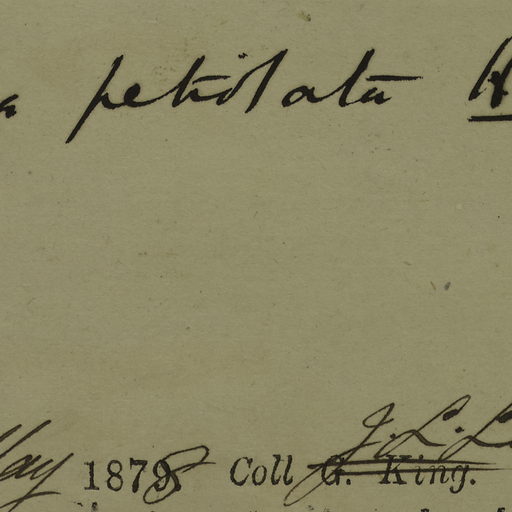 a petiolata H
May 1878 Coll G. King.
J. L. L